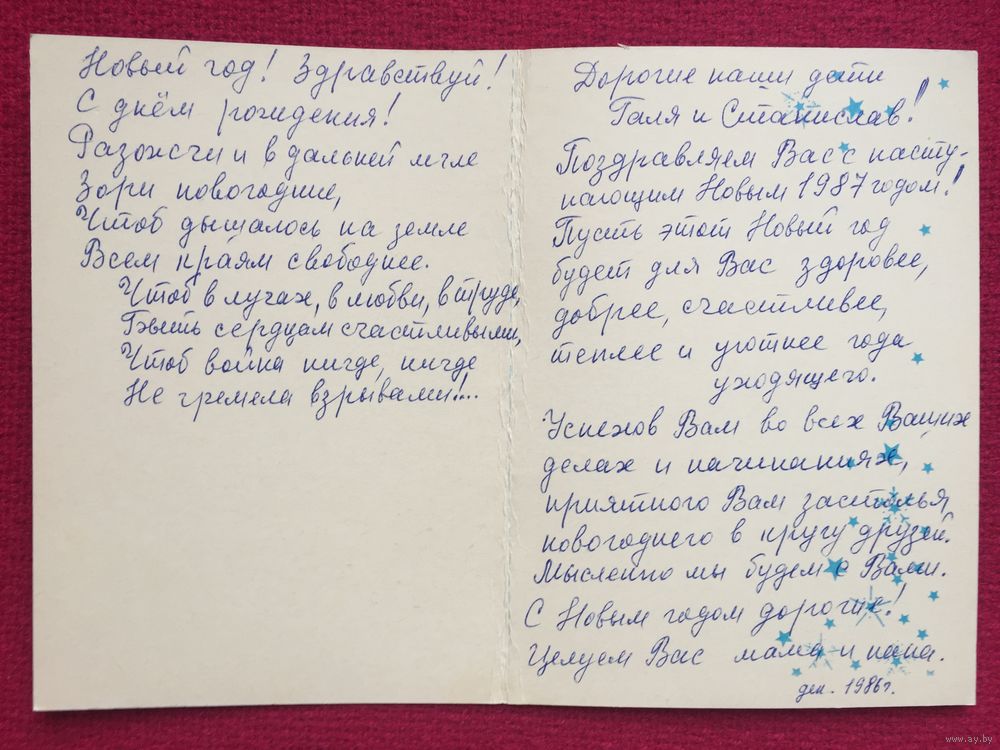 Новый год! Здравствуй!
С днём рождения!
Разожги и в дальней мгле
Зори новогодние,
Чтоб дышалось на земле
Всем краям свободнее.
Чтоб в лучах, в любви, в труде,
Быть сердцам счастливыми,
Чтоб война нигде, нигде
Не гремела взрывами!..
Дорогие наши дети
Галя и Станислав!
Поздравляем Вас с насту-
пающим Новым 1987 годом!
Пусть этот Новый год
будет для Вас здоровее,
добрее, счастливее,
теплее и уютнее года
уходящего.
Успехов Вам во всех Ваших
делах и начинаниях,
приятного Вам застолья
новогоднего в кругу друзей.
Мысленно мы будем с Вами.
С Новым годом дорогие!
Целуем Вас мама и папа.
дек. 1986 г.
www.ay.by